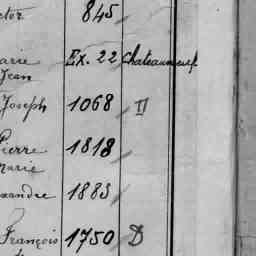 ctor 845
arie Ex. 22 Chateauneuf
Jean
Joseph 1068 D
Pierre 1818
Marie
xandre 1883
François 1750 D